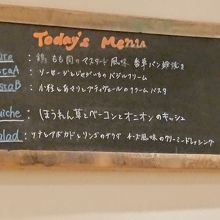 Today's Menu
鶏もも肉のマスタード風味 香草パン粉焼き
ソーセージとじゃがいものバジルクリーム
のクリームパスタ
uiche :ほうれん草とベーコンとオニオンのキッシュ
alad :ツナとアボカドとリンゴのサラダ チーズ風味のクリーミードレッシング